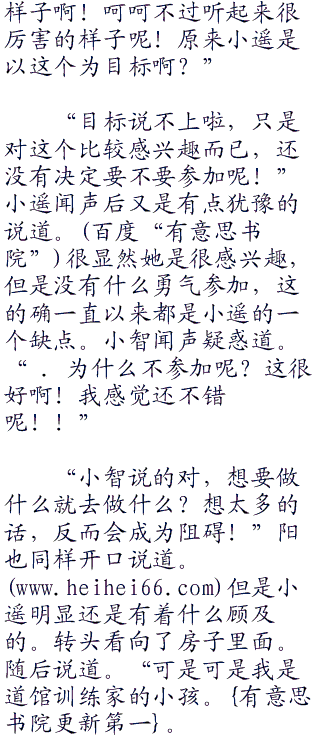 样子啊！呵呵不过听起来很
厉害的样子呢！原来小遥是
以这个为目标啊？”
“目标说不上啦，只是
对这个比较感兴趣而已，还
没有决定要不要参加呢！”
小遥闻声后又是有点犹豫的
说道。(百度“有意思书
院”)很显然她是很感兴趣，
但是没有什么勇气参加，这
的确一直以来都是小遥的一
个缺点。小智闻声疑惑道。
“ ．为什么不参加呢？这很
好啊！我感觉还不错
呢！！”
“小智说的对，想要做
什么就去做什么？想太多的
话，反而会成为阻碍！”阳
也同样开口说道。
(www.heihei66.com)但是小
遥明显还是有着什么顾及
的。转头看向了房子里面。
随后说道。“可是可是我是
道馆训练家的小孩。{有意思
书院更新第一}。